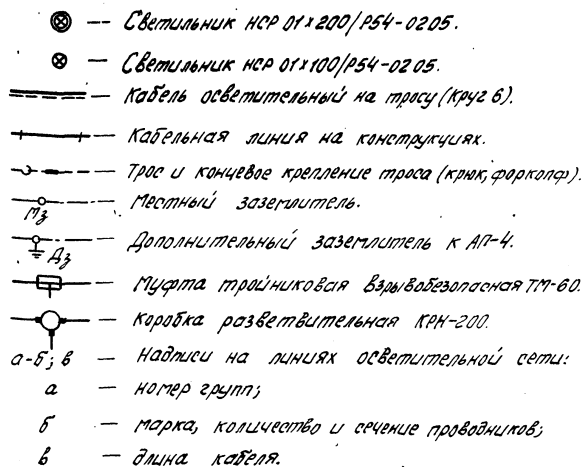 — Светильник НСР 01х200/Р54-0205.
— Светильник НСР 01х100/Р54-0205.
— Кабель осветительный на тросу (Круг 6).
— Кабельная линия на конструкциях.
— Трос и концевое крепление троса (крюк, форкопф).
Мз — Местный заземлитель.
Дз — Дополнительный заземлитель к АП-4.
— Муфта тройниковая взрывобезопасная ТМ-60.
— Коробка разветвительная КРН-200.
а-б; в — Надписи на линиях осветительной сети:
а — номер групп;
б — марка, количество и сечение проводников;
в — длина кабеля.